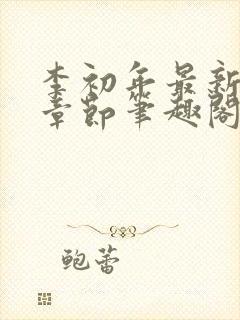 李初年最新
章节笔趣阁
鲍蕾